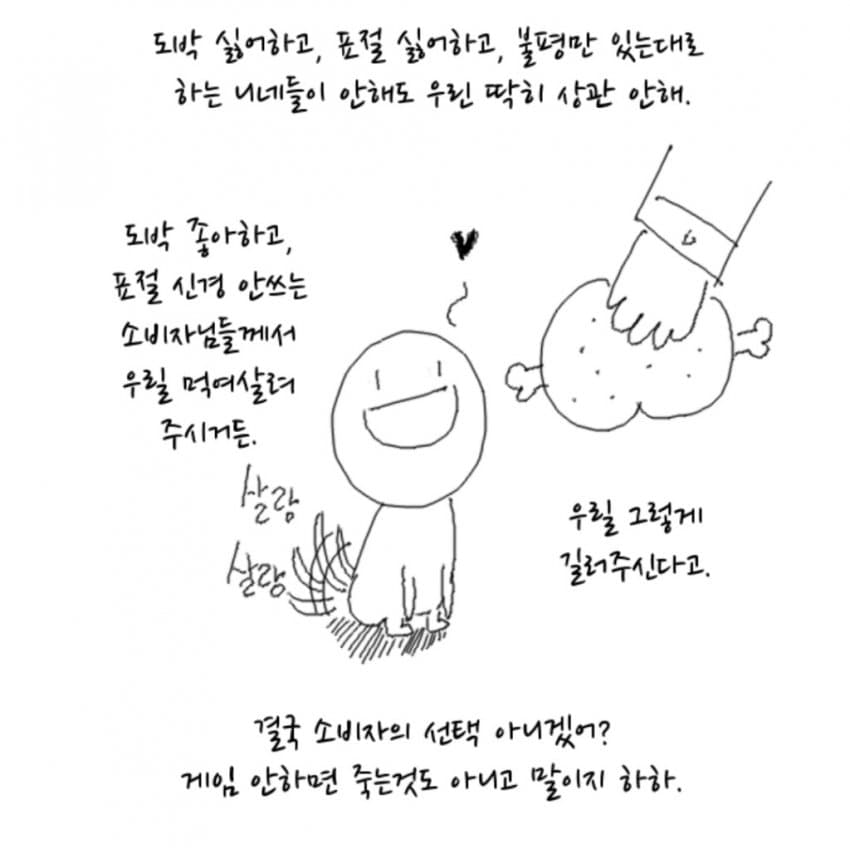 도박 싫어하고, 표절 싫어하고, 불평만 있는대로
하는 니네들이 안해도 우린 딱히 상관 안해.
도박 좋아하고,
표절 신경 안쓰는
소비자님들께서
우릴 먹여살려
주시거든.
살랑
살랑
우릴 그렇게
길러주신다고.
결국 소비자의 선택 아니겠어?
게임 안하면 죽는것도 아니고 말이지 하하.